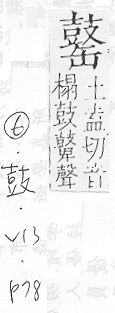 土盍切音
榻鼓鼙聲
⑥·鼓·V13·p78